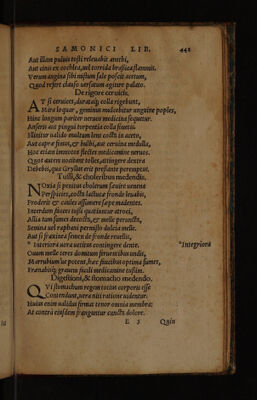 SAMONICI LIB. 442
Aut illam puluis tosti releuabit anethi,
Aut cinis ex cochlea, uel torrida brassica flammis.
Verum angina sibi mistum sale poscit acetum,
Quod rejert clauso uersatum agnire palato.
De rigore ceruicis.
AT si ceruices, durataque colla rigebunt,
Mira loquar, geminus mulcebitur unguine poples,
Hinc longum pariter neruos medicina sequetur.
Anseris aut pingui torpentia colla fouetis
Illinitur ualido multum lens cocta in aceto,
Aut capræ fimus, & bulbi, aut ceruina medulla,
Hoc etiam immotos flectes medicamine neruos.
Quos autem uocitant tolles, attingere dextra
Debebis, qua Gryllus erit pressante peremptus.
Tussi, & choleribus medendis.
NOxia si penitus cholerum sæuire uenena
Perspicies, cocta lactuca fronde leuabis,
Proderit & caules assumere sæpe madentes.
Interdum fauces tussi quatiuntur atroci,
Allia tum sumes decocta, & melle perunctā,
Semina uel raphani permisto dulcia melle.
Aut si fraxinea semen de fronde reuellis,
* Interiora uera uetitus contingere dente. * Integriora
Ouum melle ceres domitum feruentibus undis,
Marrubium'ue potens, hæc faucibus optima sumes,
Frænabis & grauem siculi medicamine tussim.
Digestioni, & stomacho medendo.
QVi stomachum regem totius corporis esse
Contendunt, uera niti ratione uidentur.
Huius enim ualidus firmat tenor omnia membra:
At contra eiusdem franguntur cuncta dolore.
E 3 Quin